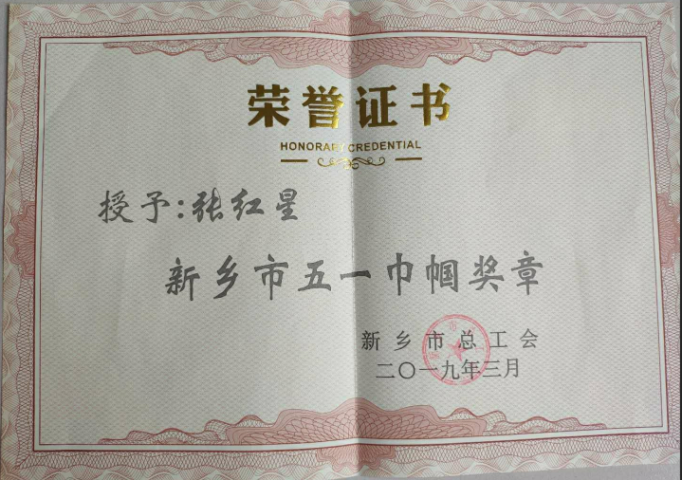 荣誉证书
HONORARY CREDENTIAL
授予:张红星
新乡市五一巾帼奖章
新乡市总工会
二〇一九年三月